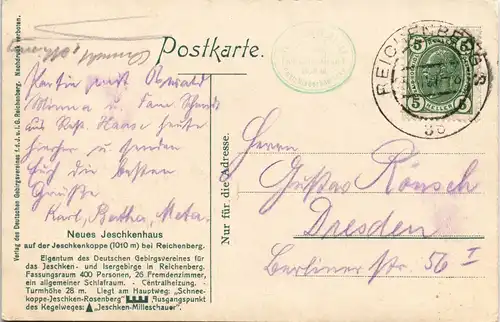 Postkarte.
REICHENBERG
5 5
5 HELLER 5
Partie mit Oswald
Minna u
aus Rest. Haase heute
hierher u senden
Euch die besten
Grüße
Karl, Bertha, Meta.
Herrn
Gustav Rönsch
Dresden
Berlinerstr. 56 I
Nur für die Adresse.
Verlag des Deutschen Gebirgsvereines f. d. J. u. I. G. Reichenberg. Nachdruck verboten.
Neues Jeschkenhaus
auf der Jeschkenkoppe (1010 m) bei Reichenberg.
Eigentum des Deutschen Gebirgsvereines für
das Jeschken- und Isergebirge in Reichenberg.
Fassungsraum 400 Personen, 26 Fremdenzimmer,
ein allgemeiner Schlafraum. - Centralheizung. -
Turmhöhe 28 m. Liegt am Hauptweg: „Schnee-
koppe-Jeschken-Rosenberg" Ausgangspunkt
des Kegelweges: „Jeschken-Milleschauer".